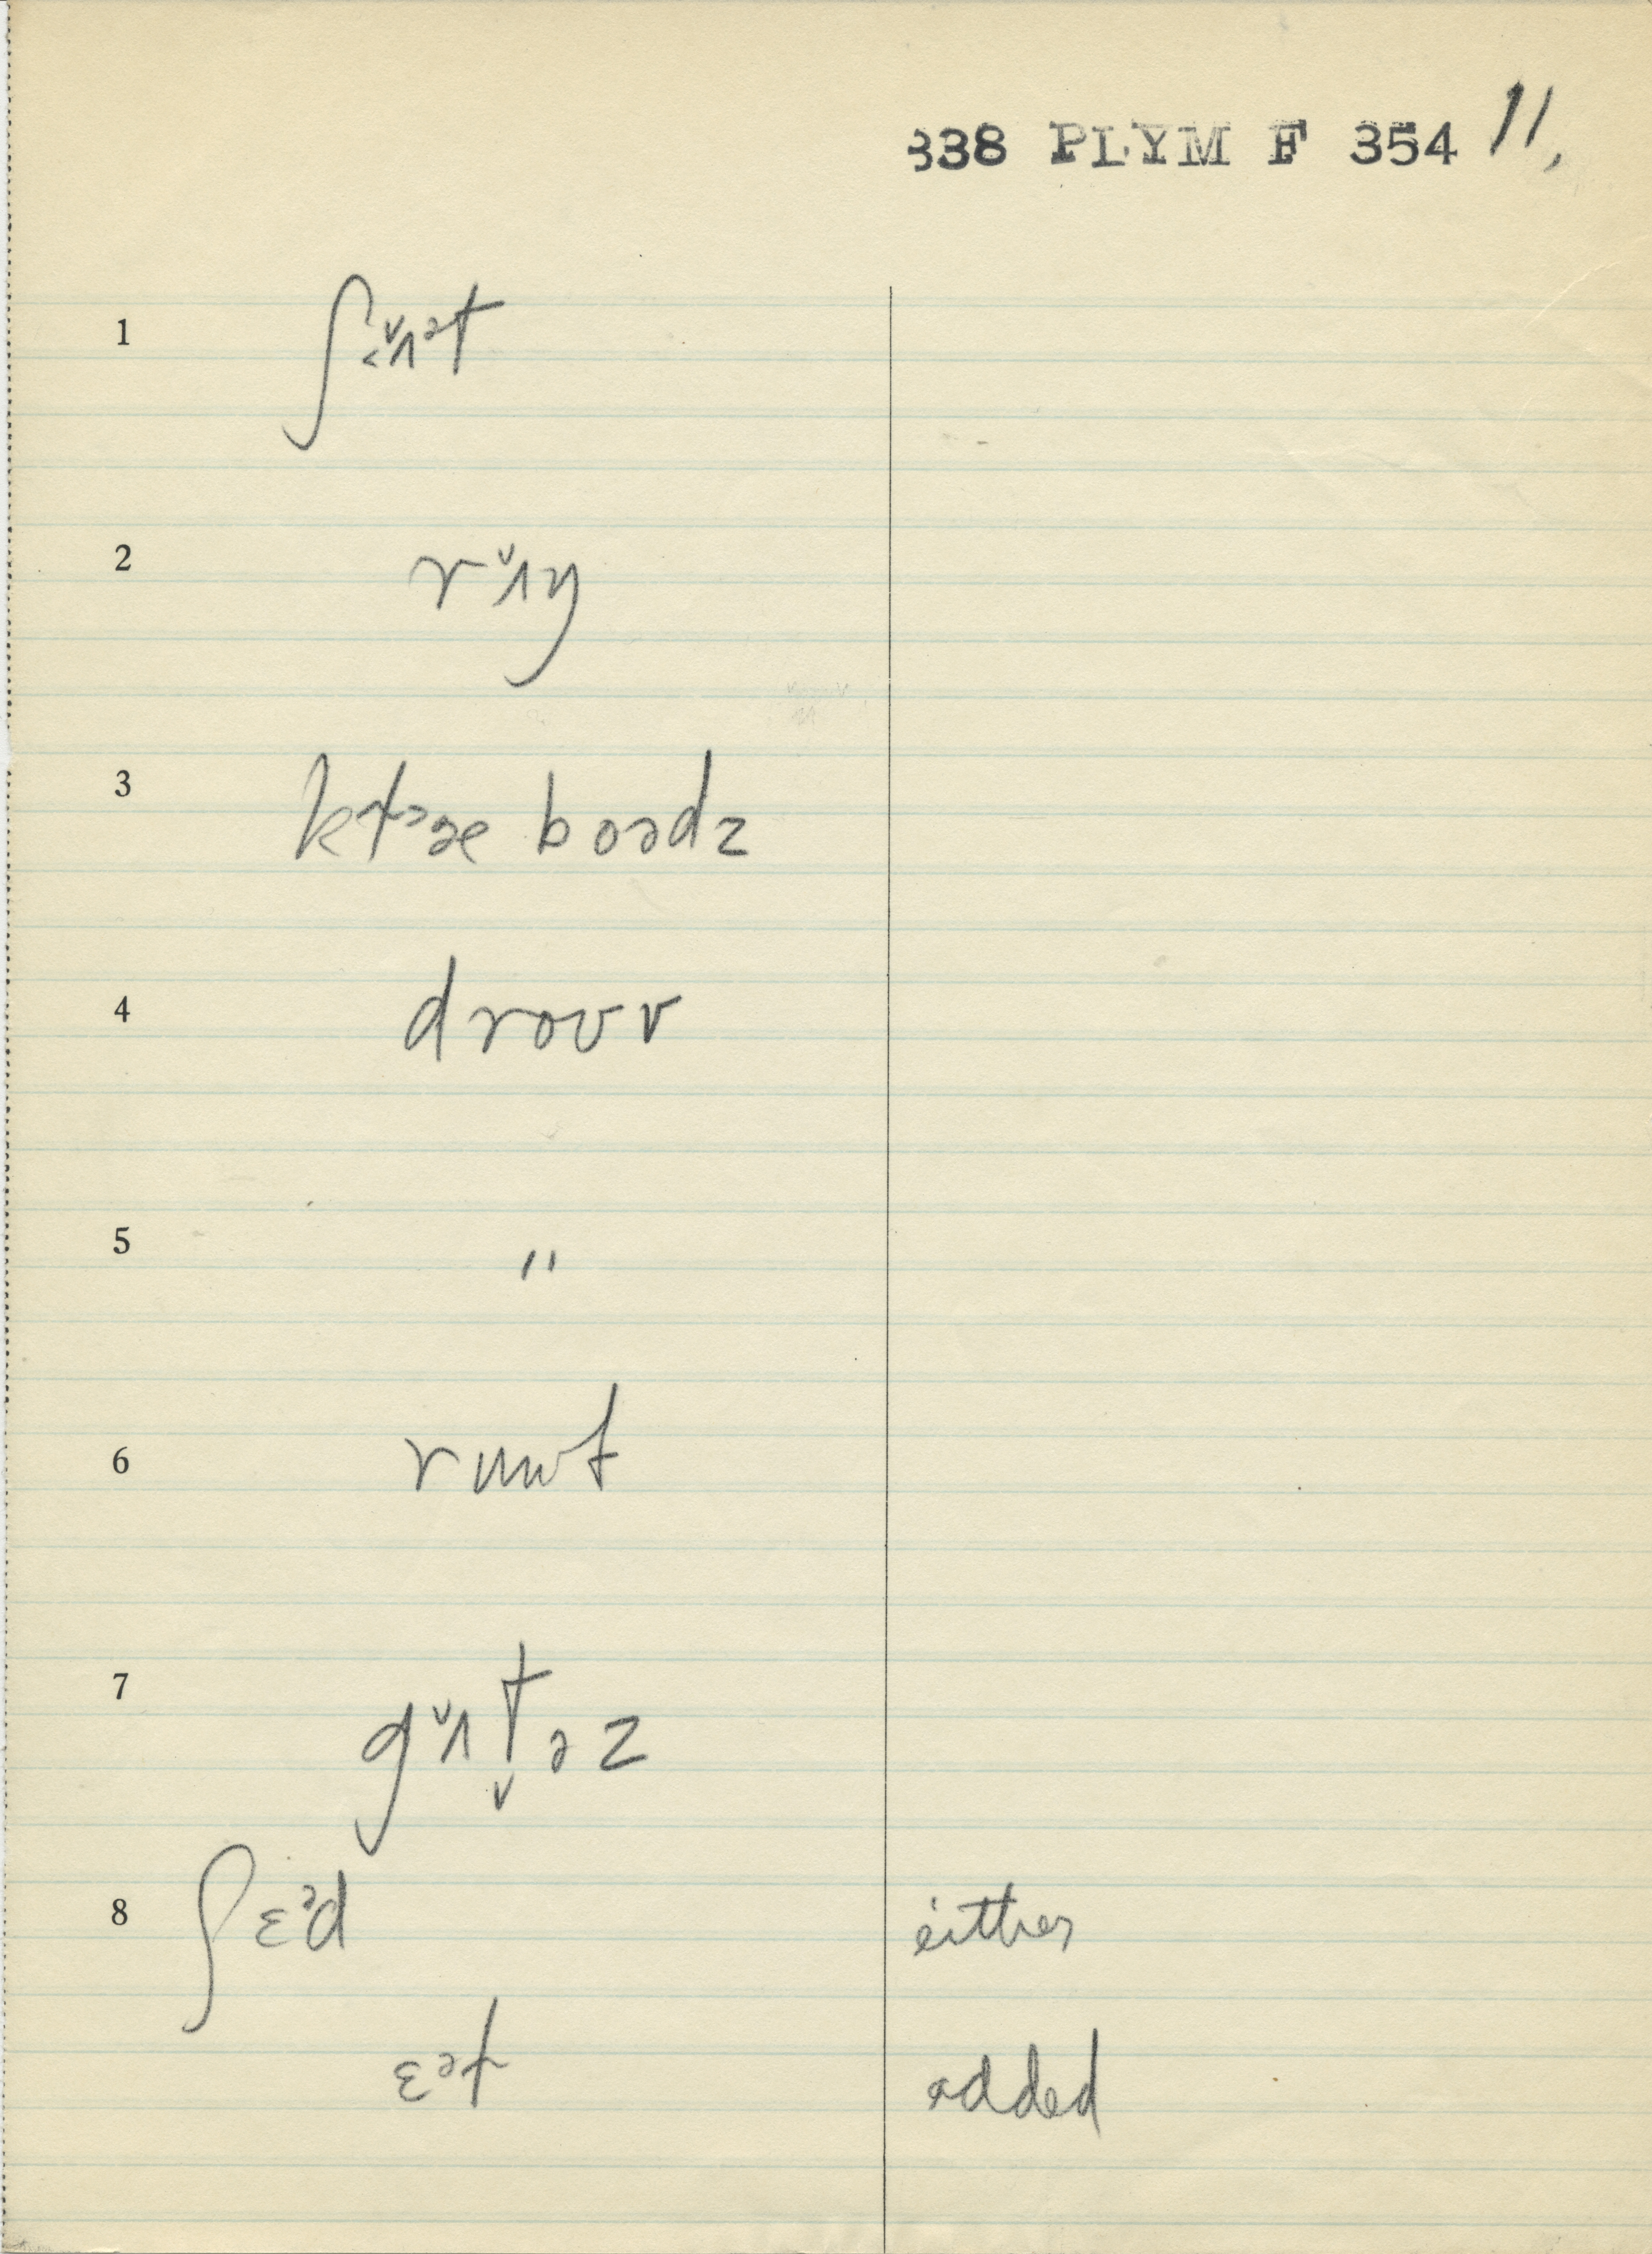 338 PLYM F 354 11.
1 ʃɪʌ̌ᵊt
2 rʌ̌ŋ
3 boədz
4 droʊv
5 "
6 ruut
7 gʌ̌t̬əz
8 ʃɛᵊd either
ɛᵊt added